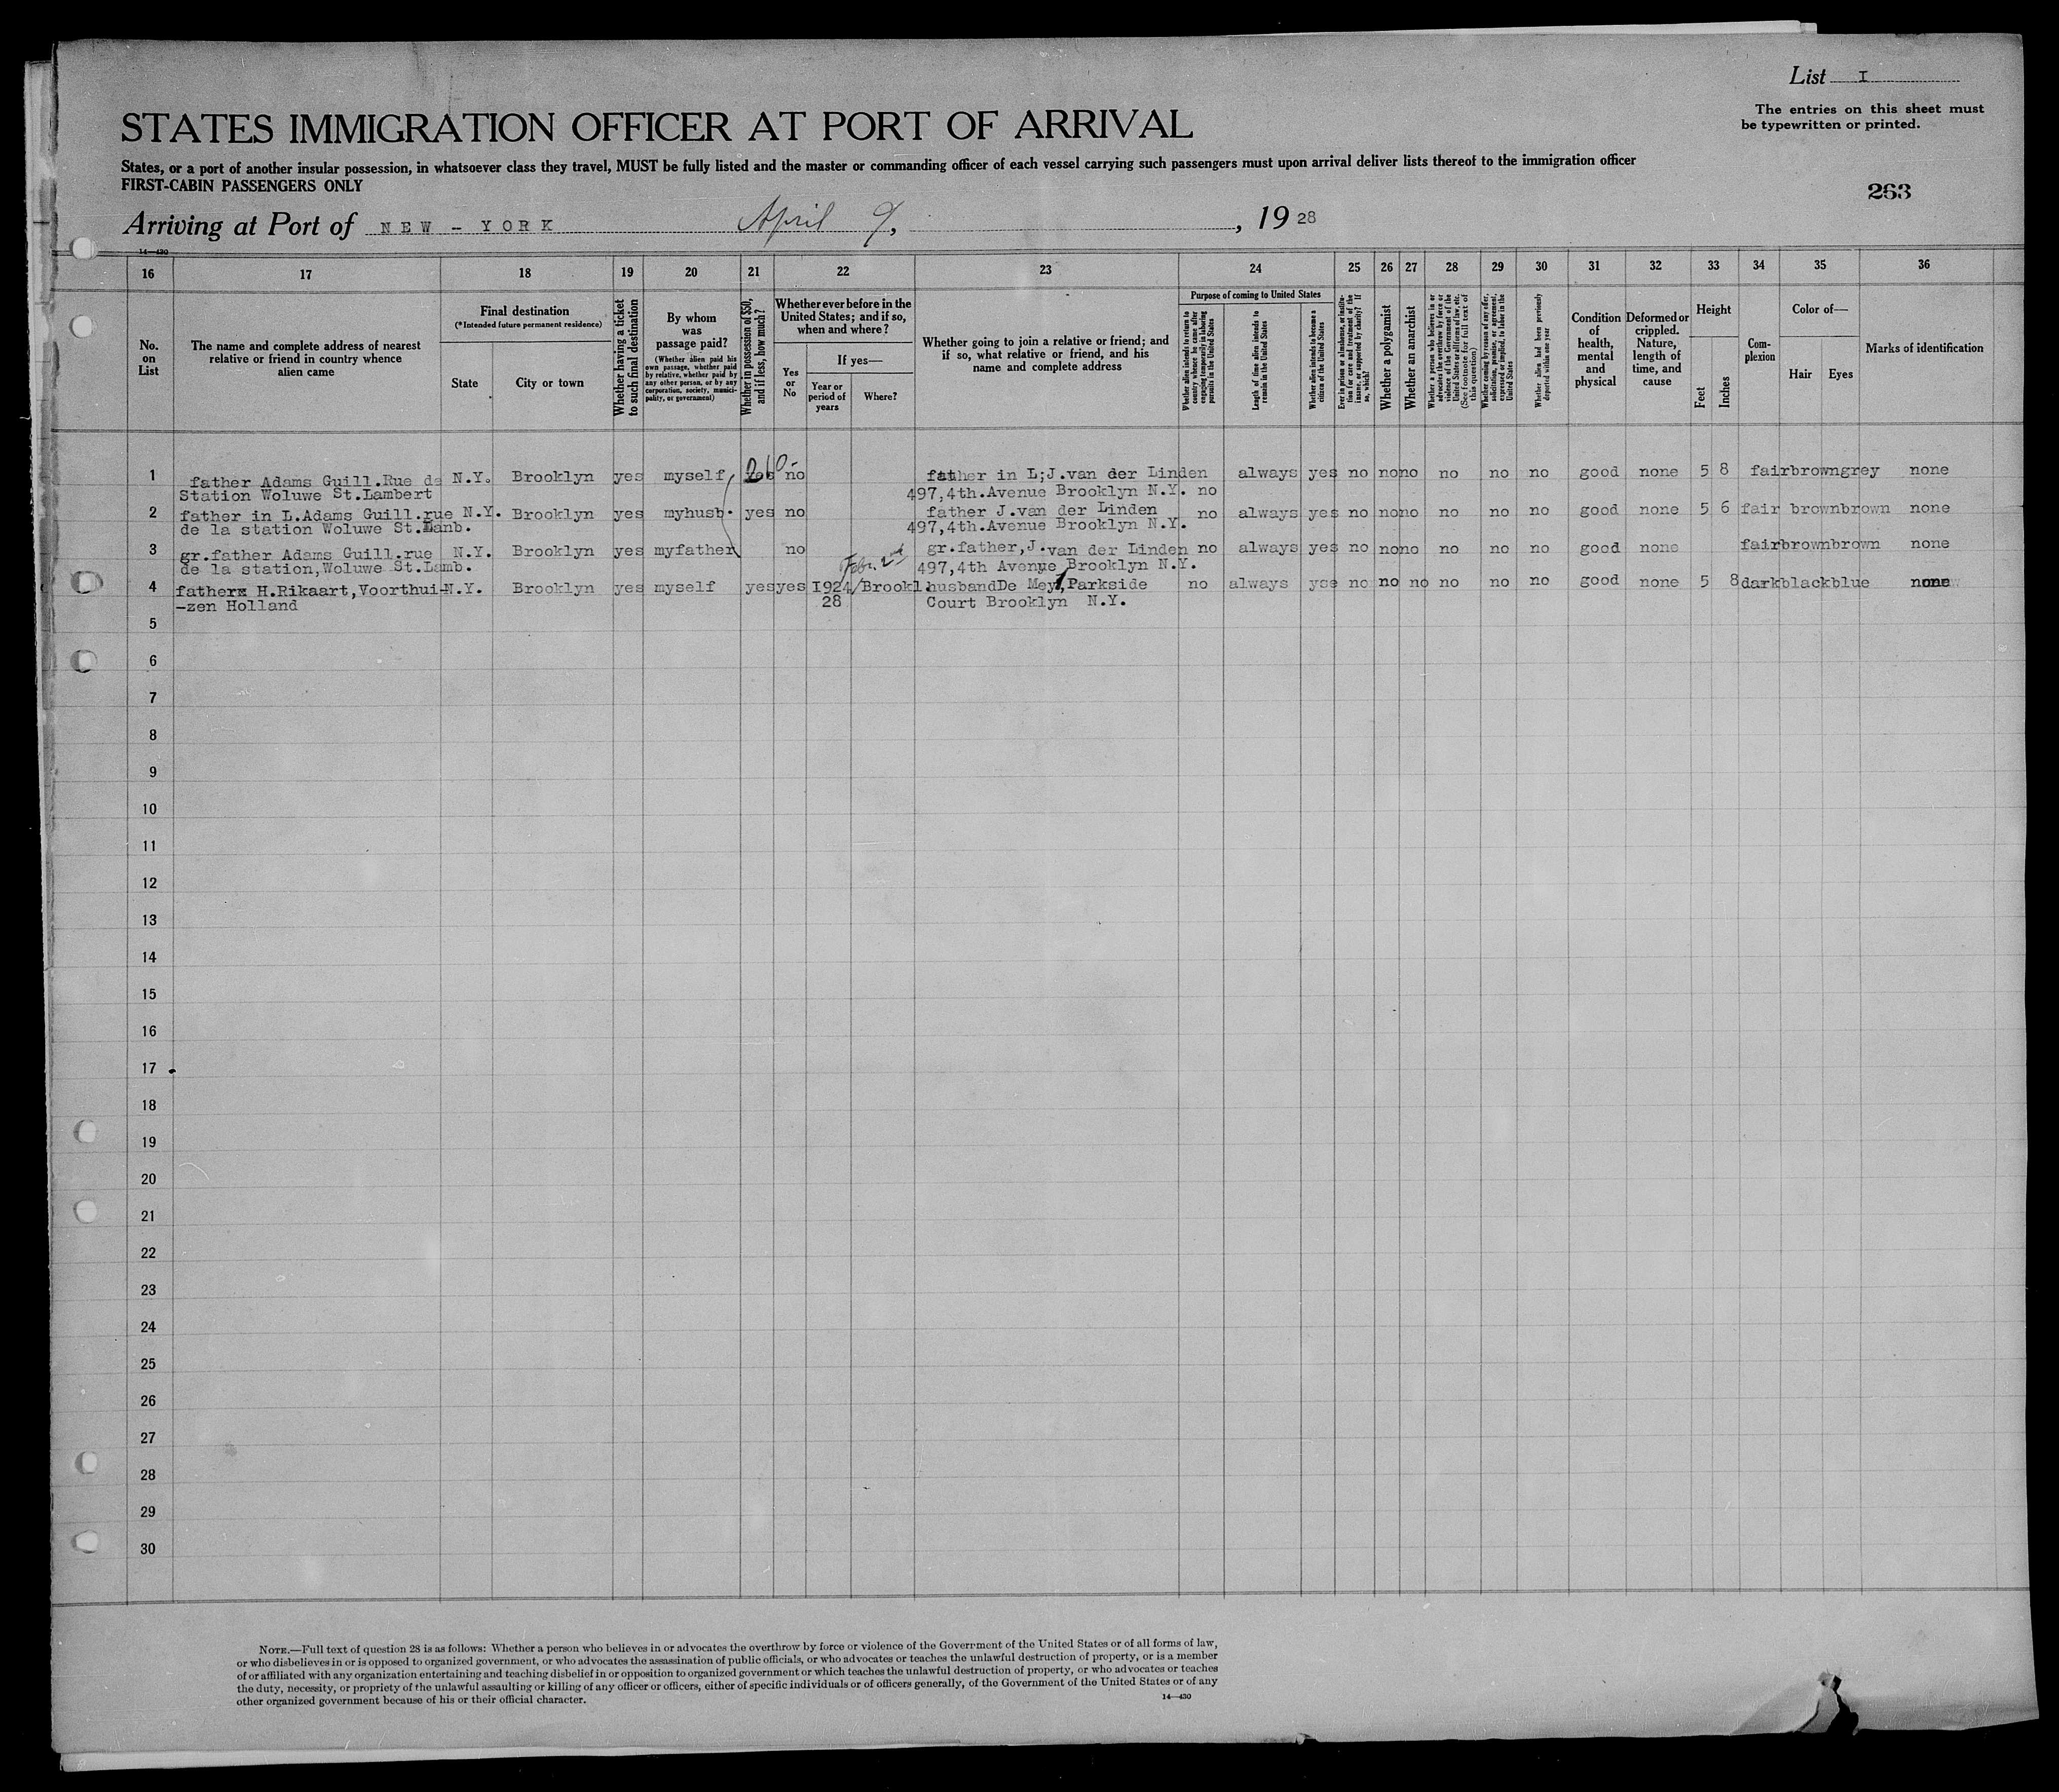 List I
The entries on this sheet must
be typewritten or printed.
STATES IMMIGRATION OFFICER AT PORT OF ARRIVAL
States, or a port of another insular possession, in whatsoever class they travel, MUST be fully listed and the master or commanding officer of each vessel carrying such passengers must upon arrival deliver lists thereof to the immigration officer
FIRST-CABIN PASSENGERS ONLY
263
Arriving at Port of NEW - YORK April 9, , 19 28
14—430
16 17 18 19 20 21 22 23 24 25 26 27 28 29 30 31 32 33 34 35 36
No. on List
The name and complete address of nearest relative or friend in country whence alien came
Final destination
(*Intended future permanent residence)
State
City or town
Whether having a ticket to such final destination
By whom was passage paid?
(Whether alien paid his own passage, whether paid by relative, whether paid by any other person, or by any corporation, society, municipality, or government)
Whether in possession of $50, and if less, how much?
Whether ever before in the United States; and if so, when and where?
Yes or No
If yes—
Year or period of years
Where?
Whether going to join a relative or friend; and if so, what relative or friend, and his name and complete address
Purpose of coming to United States
Whether alien intends to return to country whence he came after engaging temporarily in laboring pursuits in the United States
Length of time alien intends to remain in the United States
Whether alien intends to become a citizen of the United States
Ever in prison or almshouse, or institution for care and treatment of the insane, or supported by charity? If so, which?
Whether a polygamist
Whether an anarchist
Whether a person who believes in or advocates the overthrow by force or violence of the Government of the United States or all forms of law, etc. (See footnote for full text of this question)
Whether coming by reason of any offer, solicitation, promise, or agreement, expressed or implied, to labor in the United States
Whether alien had been previously deported within one year
Condition of health, mental and physical
Deformed or crippled. Nature, length of time, and cause
Height
Feet
Inches
Complexion
Color of—
Hair
Eyes
Marks of identification
1 father Adams Guill.Rue de N.Y. Brooklyn yes myself, yes no father in L;J.van der Linden always yes no no no no no no good none 5 8 fair brown grey none
Station Woluwe St.Lambert 497,4th.Avenue Brooklyn N.Y. no
2 father in L.Adams Guill.rue N.Y. Brooklyn yes myhusb. yes no father J.van der Linden no always yes no no no no no no good none 5 6 fair brown brown none
de la station Woluwe St.Lamb. 497,4th.Avenue Brooklyn N.Y.
3 gr.father Adams Guill.rue N.Y. Brooklyn yes myfather no gr.father,J.van der Linden no always yes no no no no no no good none fair brown brown none
de la station,Woluwe St.Lamb. Febr. 2nd 497,4th Avenue Brooklyn N.Y.
4 fatherx H.Rikaart,Voorthui- N.Y. Brooklyn yes myself yes yes 1924/ Brookl. husbandDe Mey,1 Parkside no always yse no no no no no no good none 5 8 dark black blue none
-zen Holland 28 Court Brooklyn N.Y.
5
6
7
8
9
10
11
12
13
14
15
16
17
18
19
20
21
22
23
24
25
26
27
28
29
30
NOTE.—Full text of question 28 is as follows: Whether a person who believes in or advocates the overthrow by force or violence of the Government of the United States or of all forms of law,
or who disbelieves in or is opposed to organized government, or who advocates the assassination of public officials, or who advocates or teaches the unlawful destruction of property, or is a member
of or affiliated with any organization entertaining and teaching disbelief in or opposition to organized government or which teaches the unlawful destruction of property, or who advocates or teaches
the duty, necessity, or propriety of the unlawful assaulting or killing of any officer or officers, either of specific individuals or of officers generally, of the Government of the United States or of any
other organized government because of his or their official character.
14—430